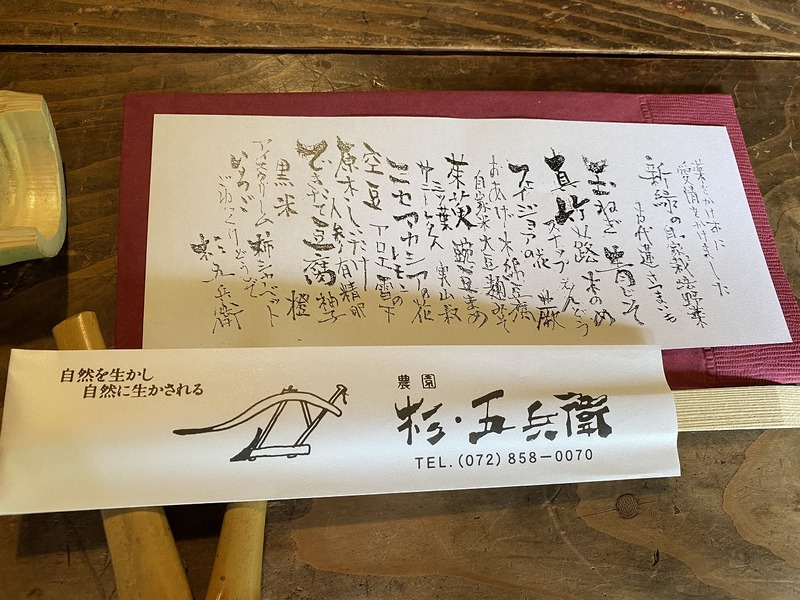 愛情をかけました
新緑の自家栽培野菜
古代蓮 さつまいも
玉ねぎ 青じそ
真竹 山路 木のめ
スナップえんどう
フェイジョアの花 蕨
おあげ 木綿豆腐
自家米 大豆 麹みそ
茱萸 豌豆
三ツ葉 実山椒
サニーレタス
ミモザアカシアの花
アロエ 雪の下
空豆
原木しいたけ
人参 有精卵
できたて豆腐 柚子
橙
黒米
アイスクリーム 柿シャーベット
いちご
杉五兵衛
自然を生かし
自然に生かされる
農園
杉・五兵衛
TEL.(072)858-0070